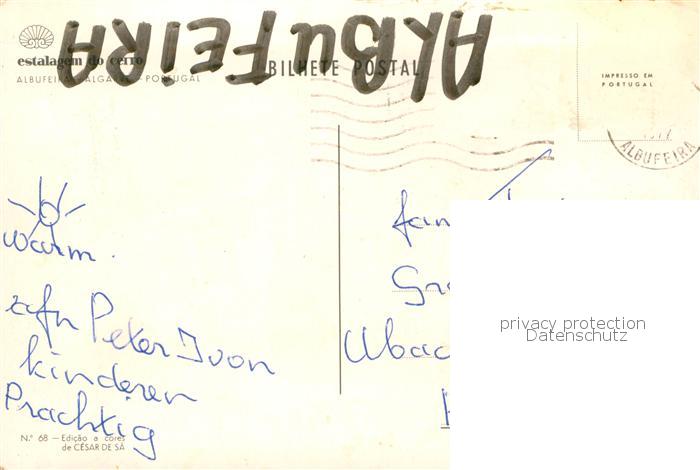 ALBUFEIRA
estalagem do cerro
ALBUFEIRA - ALGARVE - PORTUGAL
BILHETE POSTAL
IMPRESSO EM
PORTUGAL
ALBUFEIRA
warm.
Peter Ivon
kinderen
Prachtig
fam
Gr
Ubac
privacy protection
Datenschutz
N.º 68 — Edição a cores
de CÉSAR DE SÁ